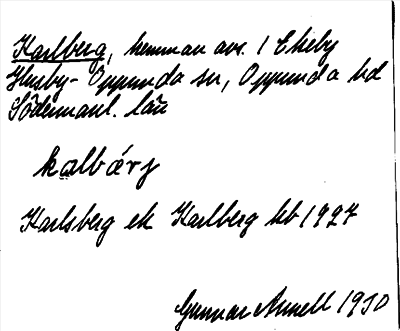 Karlberg, hemman avs. 1 Ekeby
Husby-Oppunda sn, Oppunda hd
Södermanl. län
kalbärj
Karlsberg ek Karlberg hb 1927
Gunnar Annell 1930